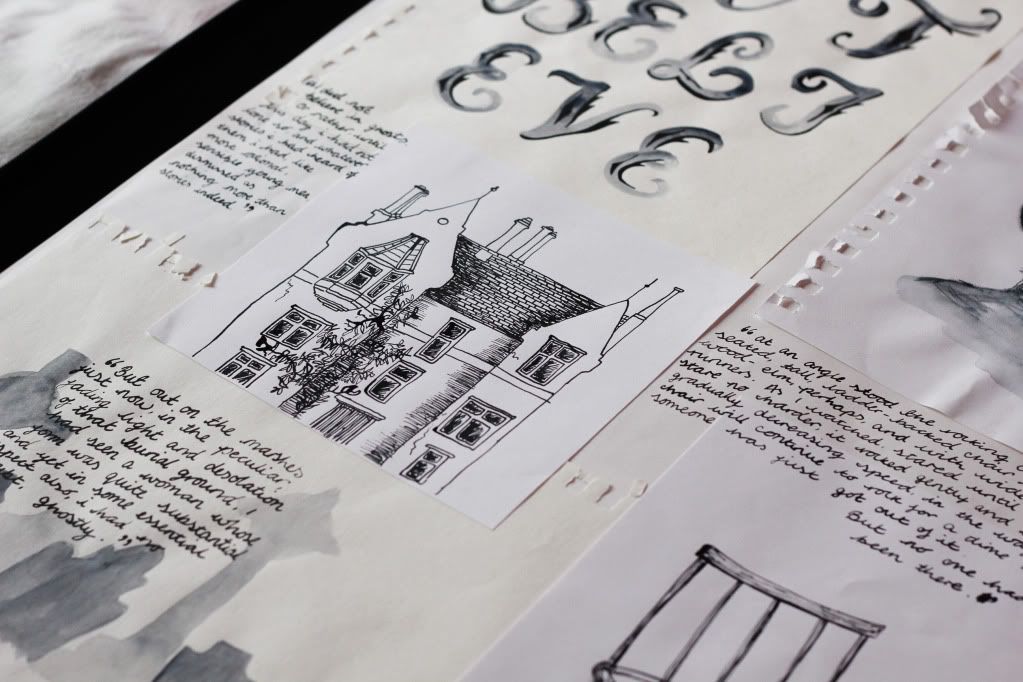 BELI
EVE
“i had not
believe in ghosts
or rather until
day, i would not
so, and whatever
stories i had heard of
them i had, like
most
sensible young men
dismissed as
nothing more than
stories indeed.”
“But out on the marshes
just now, in the peculiar,
fading light and desolation
of that burial ground, i
had seen a woman whose
form was quite substantial
and yet in some essential
also, i had
ghostly.”
“at an angle stood the rocking
tall, ladder backed chair
wood elm, perhaps, and with
runners. As i watched stared until
no it rocked gently and
gradually decreasing speed, in the
chair will continue to rock for a time
someone has just got out of it
But no one had
been there.